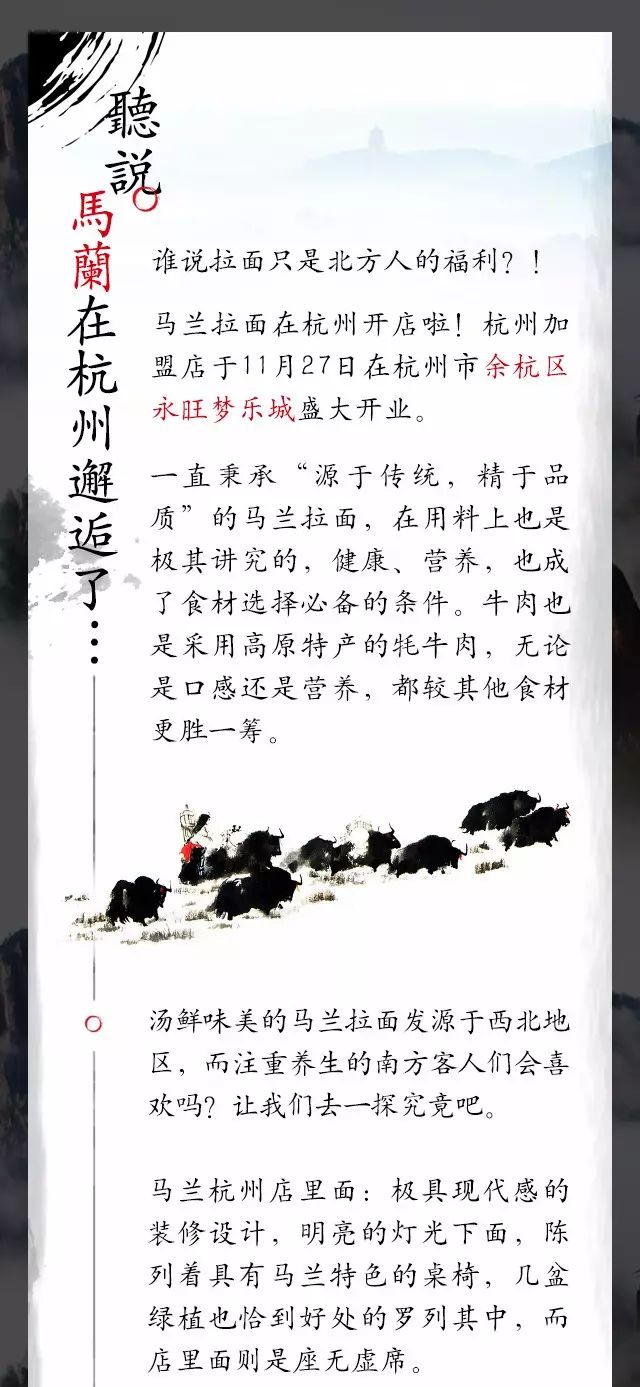 聽説
馬蘭在杭州邂逅了…
谁说拉面只是北方人的福利？！
马兰拉面在杭州开店啦！杭州加
盟店于11月27日在杭州市余杭区
永旺梦乐城盛大开业。
一直秉承“源于传统，精于品
质”的马兰拉面，在用料上也是
极其讲究的，健康、营养，也成
了食材选择必备的条件。牛肉也
是采用高原特产的牦牛肉，无论
是口感还是营养，都较其他食材
更胜一筹。
汤鲜味美的马兰拉面发源于西北地
区，而注重养生的南方客人们会喜
欢吗？让我们去一探究竟吧。
马兰杭州店里面：极具现代感的
装修设计，明亮的灯光下面，陈
列着具有马兰特色的桌椅，几盆
绿植也恰到好处的罗列其中，而
店里面则是座无虚席。